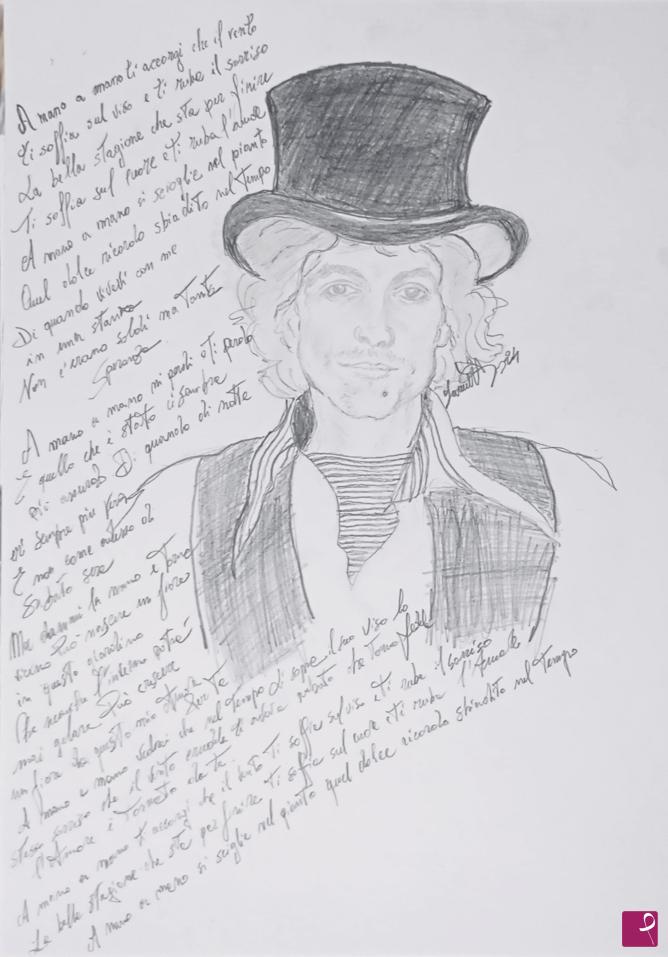 A mano a mano ti accorgi che il vento
ti soffia sul viso e ti ruba il sorriso
La bella stagione che sta per finire
Ti soffia sul cuore e ti ruba l'amore
A mano a mano si scioglie nel pianto
Quel dolce ricordo sbiadito nel tempo
Di quando vivevi con me
in una stanza
Non c'erano soldi ma Tanta
Speranza
A mano a mano mi perdi e ti perdo
E quello che è stato ci sembra
più assurdo Di quando di notte
eri sempre più vera
E non come adesso
Sabato sera
Ma dammi la mano e torna
vicino Può nascere un fiore
in questo giardino
Che neanche l'inverno potrà
mai gelare Può crescere
un fiore da questo mio
Per Te
A mano a mano vedrai che nel tempo Di sopra il suo viso lo
stesso sorriso che il vento crudele ti aveva rubato che Torna fedele
l'Amore è Tornato da te
A mano a mano ti accorgi che il vento Ti soffia sul viso e ti ruba il sorriso
La bella stagione che sta per finire Ti soffia sul cuore e ti ruba l'Amore
A mano a mano si scioglie nel pianto quel dolce ricordo sbiadito nel tempo